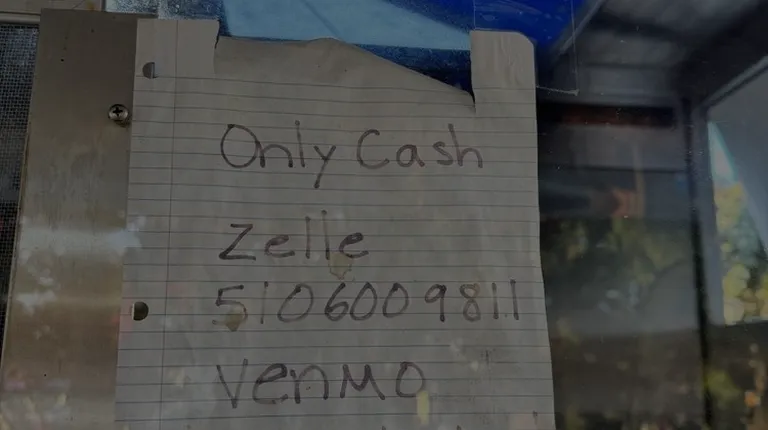 Only Cash
Zelle
5106009811
Venmo